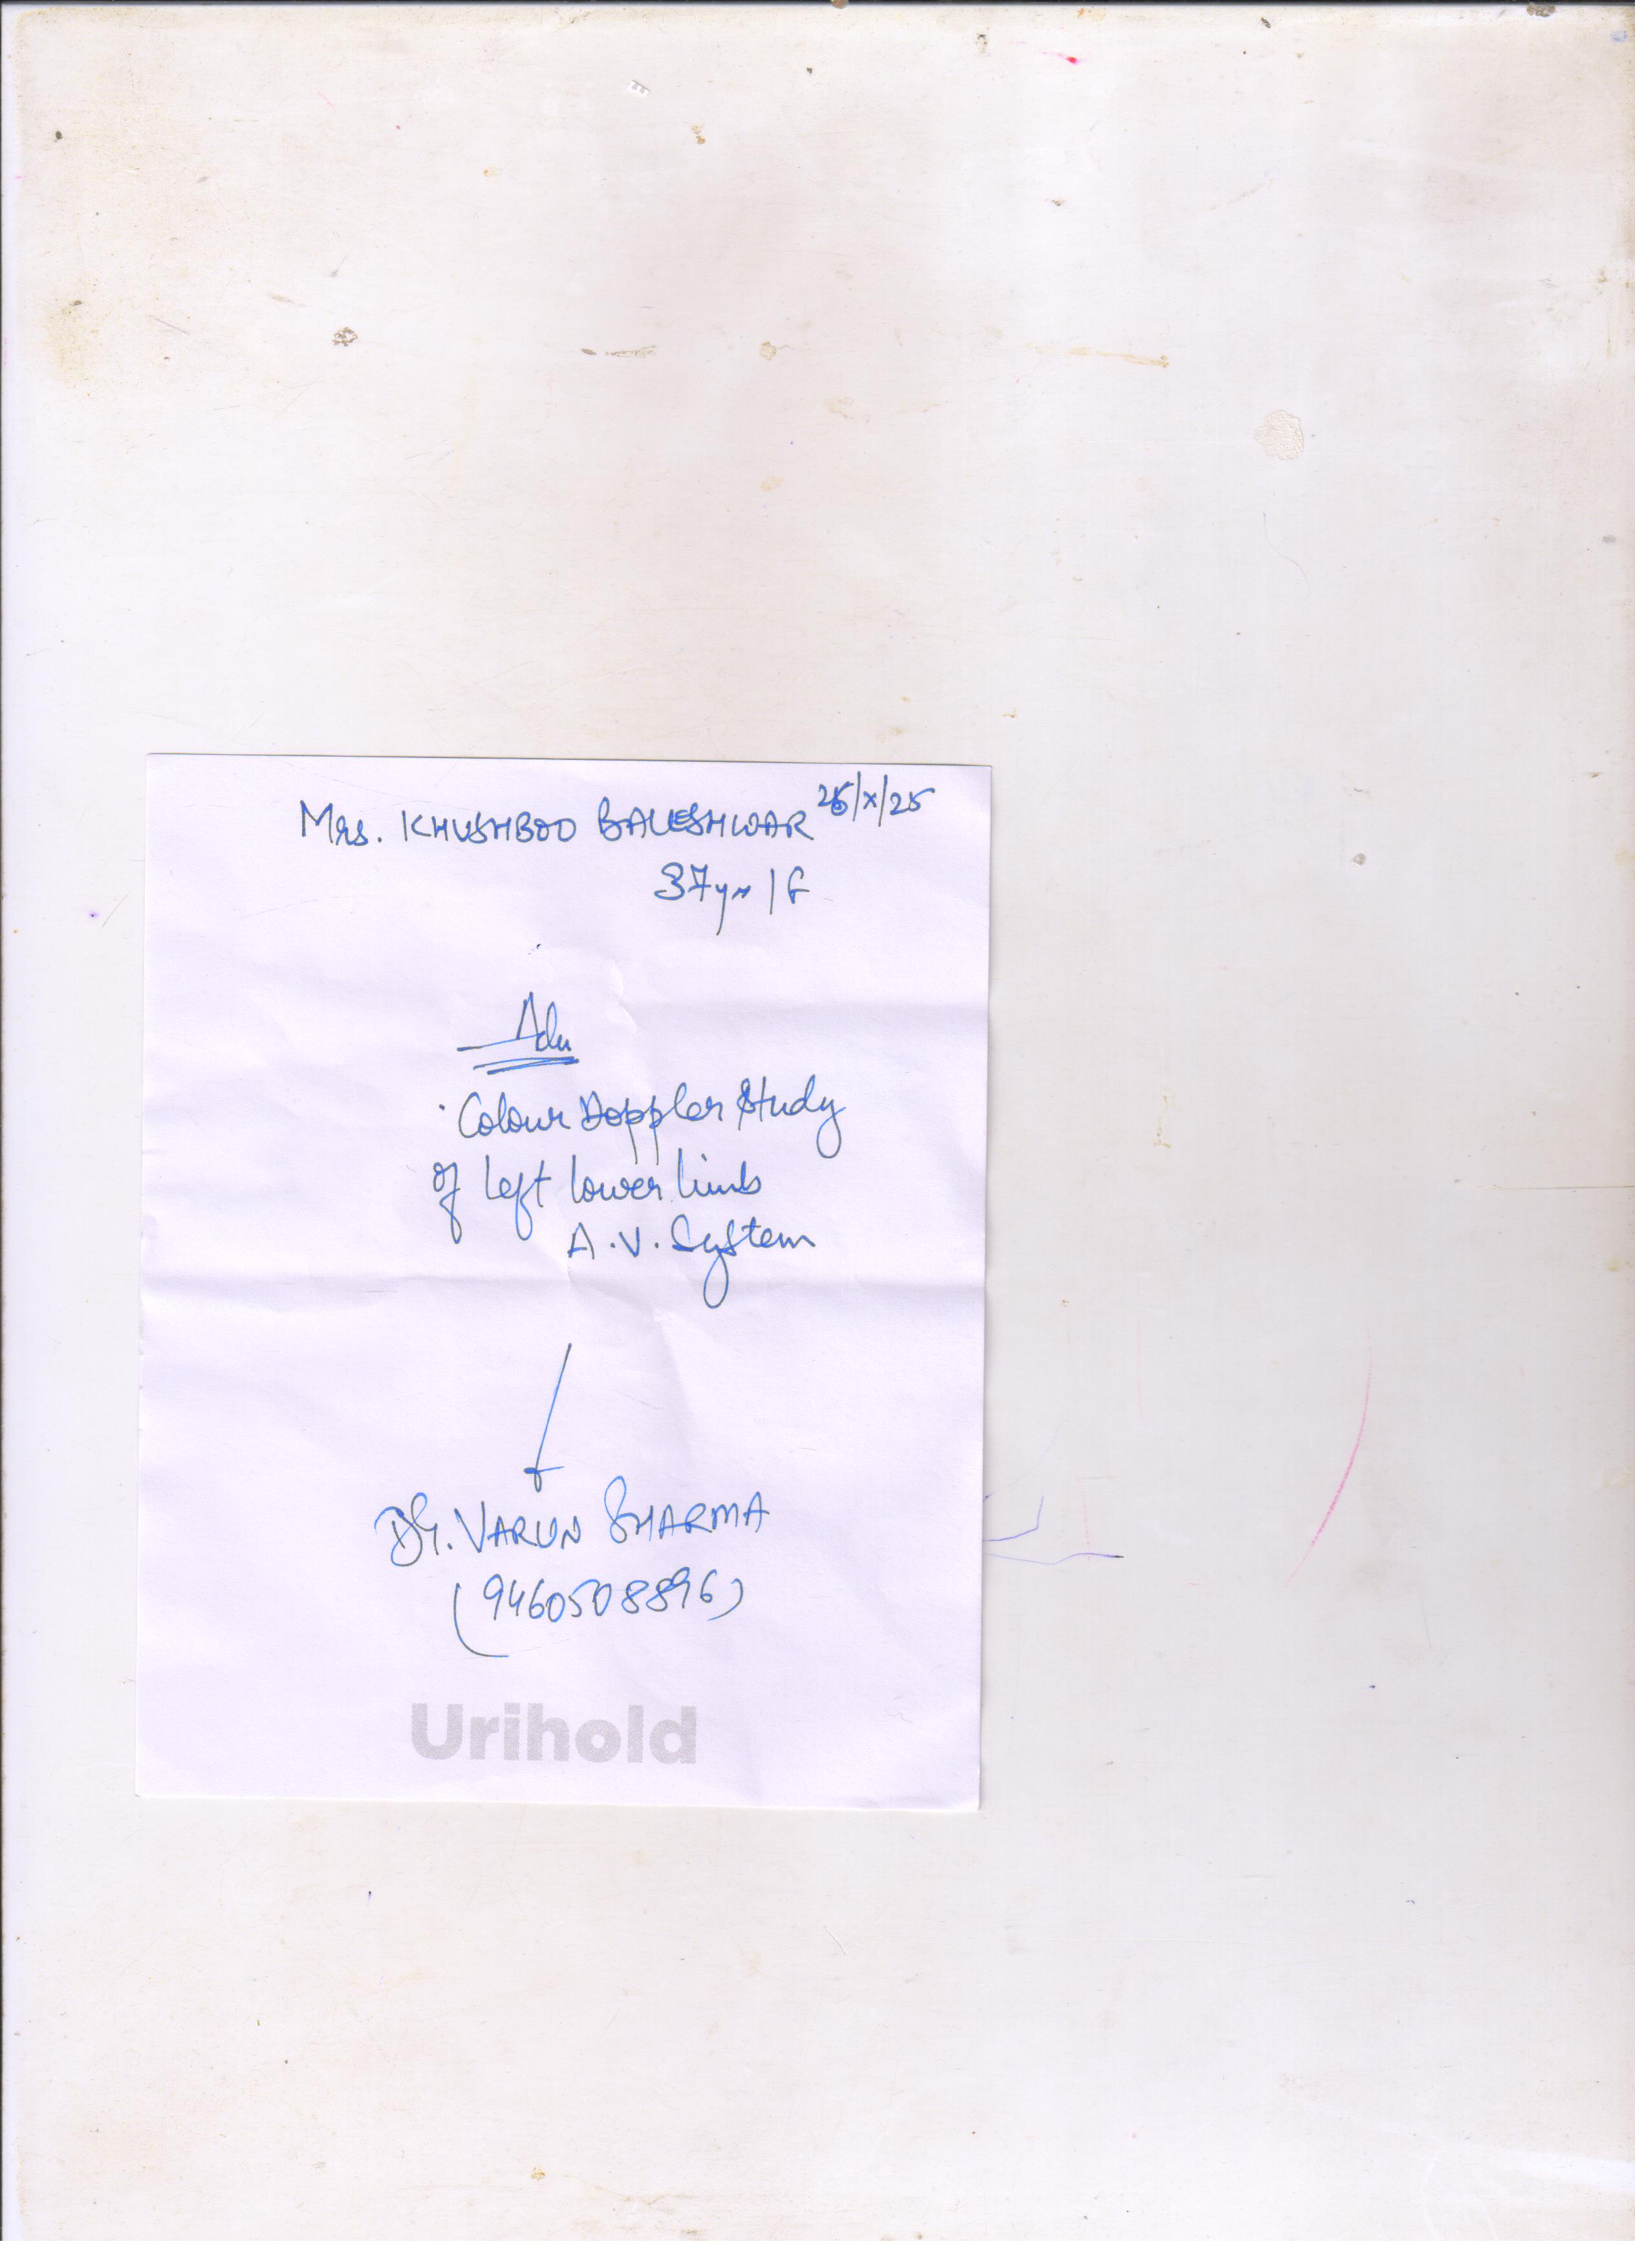 Mrs. KHUSHBOO BALESHWAR 26/X/25
37yr | F
Adv
· Colour Doppler Study
of left lower limb
A.V. System
Dr. VARUN SHARMA
(9460508896)
Urihold